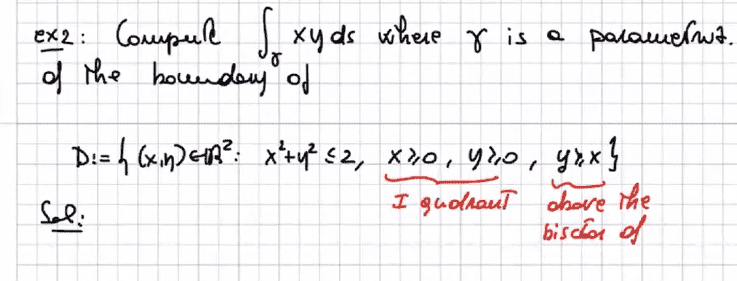 ex2: Compute ∫_γ xy ds where γ is a parametriz.
of the boundary of
D:= { (x,y)∈ℝ²: x²+y² ≤ 2, x≥0, y≥0, y≥x}
I quadrant above the
Sol: bisector of